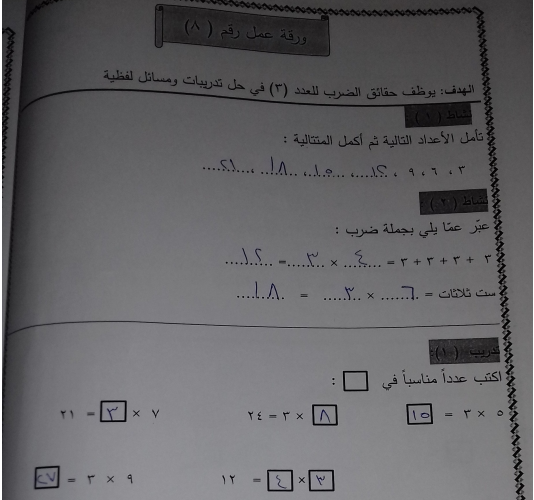 ورقة عمل رقم ( ٨ )
الهدف: يوظف حقائق الضرب للعدد (٣) في حل تدريبات ومسائل لفظية
نشاط ( ١ )
تأمل الأعداد التالية ثم أكمل المتتالية :
٣ ، ٦ ، ٩ ، ١٢ ، ١٥ ، ١٨ ، ٢١
نشاط ( ٢ ) :
عبّر عمّا يلي بجملة ضرب :
٣ + ٣ + ٣ + ٣ = ٤ × ٣ = ١٢
ست ثلاثات = ٦ × ٣ = ١٨
تدريب (١):
اكتب عدداً مناسباً في □ :
٥ × ٣ = ١٥ ٨ × ٣ = ٢٤ ٧ × ٣ = ٢١
٣ × ٤ = ١٢ ٩ × ٣ = ٢٧